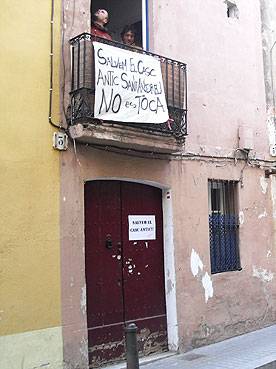 SALVEM EL CASC
ANTIC SANT ANDREU
NO ES TOCA
SALVEM EL
CASC ANTIC!!